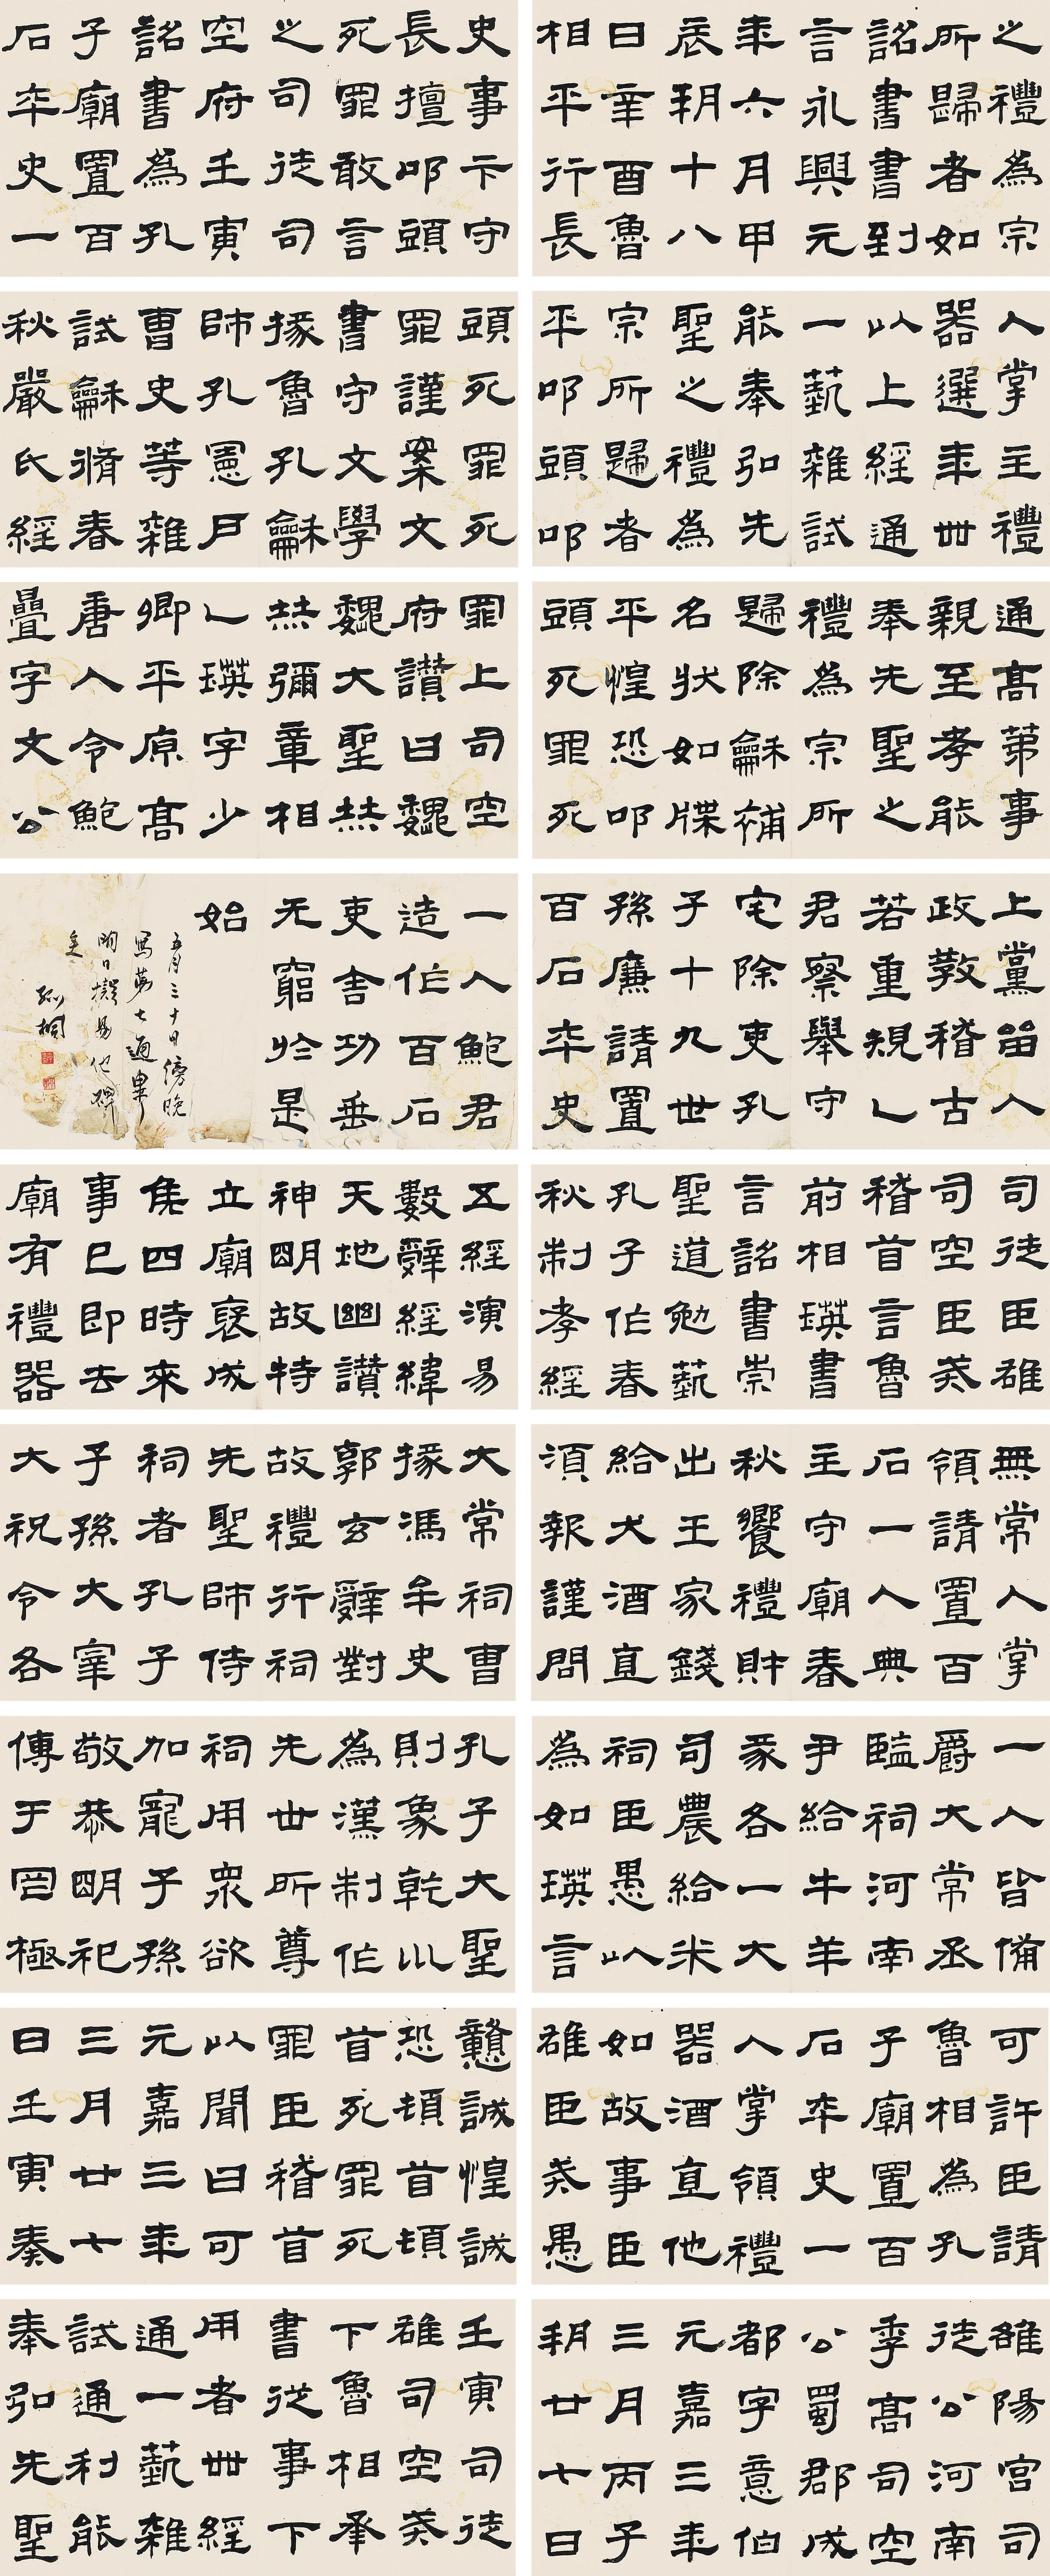 之禮為宗
所歸者如
詔書書到
言永興元
年六月甲
辰朔十八
日辛酉魯
相平行長
史事卞守
長擅叩頭
死罪敢言
之司徒司
空府壬寅
詔書為孔
子廟置百
石卒史一
人掌主禮
器選年卌
以上經通
一藝雜試
能奉弘先
聖之禮為
宗所歸者
平叩頭叩
頭死罪死
罪謹案文
書守文學
掾魯孔龢
師孔憲戶
曹史等雜
試龢脩春
秋嚴氏經
通高第事
親至孝能
奉先聖之
禮為宗所
歸除龢補
名狀如牒
平惶恐叩
頭死罪死
罪上司空
府讃曰巍
巍大聖赫
赫彌章相
乙瑛字少
卿平原高
唐人令鮑
疊字文公
上黨畱人
政教稽古
若重規乙
君察舉守
宅除吏孔
子十九世
孫廉請置
百石卒史
一人鮑君
造作百石
吏舍功垂
无窮於是
始
五月三十日傍晚
寫第七通畢
明日擬易他碑
矣
孤桐
司徒臣雄
司空臣戒
稽首言魯
前相瑛書
言詔書崇
聖道勉藝
孔子作春
秋制孝經
五經演易
數辭經緯
天地幽讃
神明故特
立廟褒成
矦四時來
事已即去
廟有禮器
無常人掌
領請置百
石一人典
主守廟春
秋饗禮財
出王家錢
給犬酒直
須報謹問
大常祠曹
掾馮牟史
郭玄辭對
故禮行祠
先聖師侍
祠者孔子
子孫大宰
大祝令各
一人皆備
爵大常丞
監祠河南
尹給牛羊
豕各一大
司農給米
祠臣愚以
為如瑛言
孔子大聖
則象乾川
為漢制作
先世所尊
祠用眾欲
加寵子孫
敬恭明祀
傳于罔極
可許臣請
魯相為孔
子廟置百
石卒史一
人掌領禮
器酒直他
如故事臣
雄臣戒愚
戇誠惶誠
恐頓首頓
首死罪死
罪臣稽首
以聞曰可
元嘉三年
三月廿七
日壬寅奏
雒陽宮司
徒公河南
季高司空
公蜀郡成
都字意伯
元嘉三年
三月丙子
朔廿七日
壬寅司徒
雄司空戒
下魯相承
書從事下
用者卌經
通一藝雜
試通利能
奉弘先聖